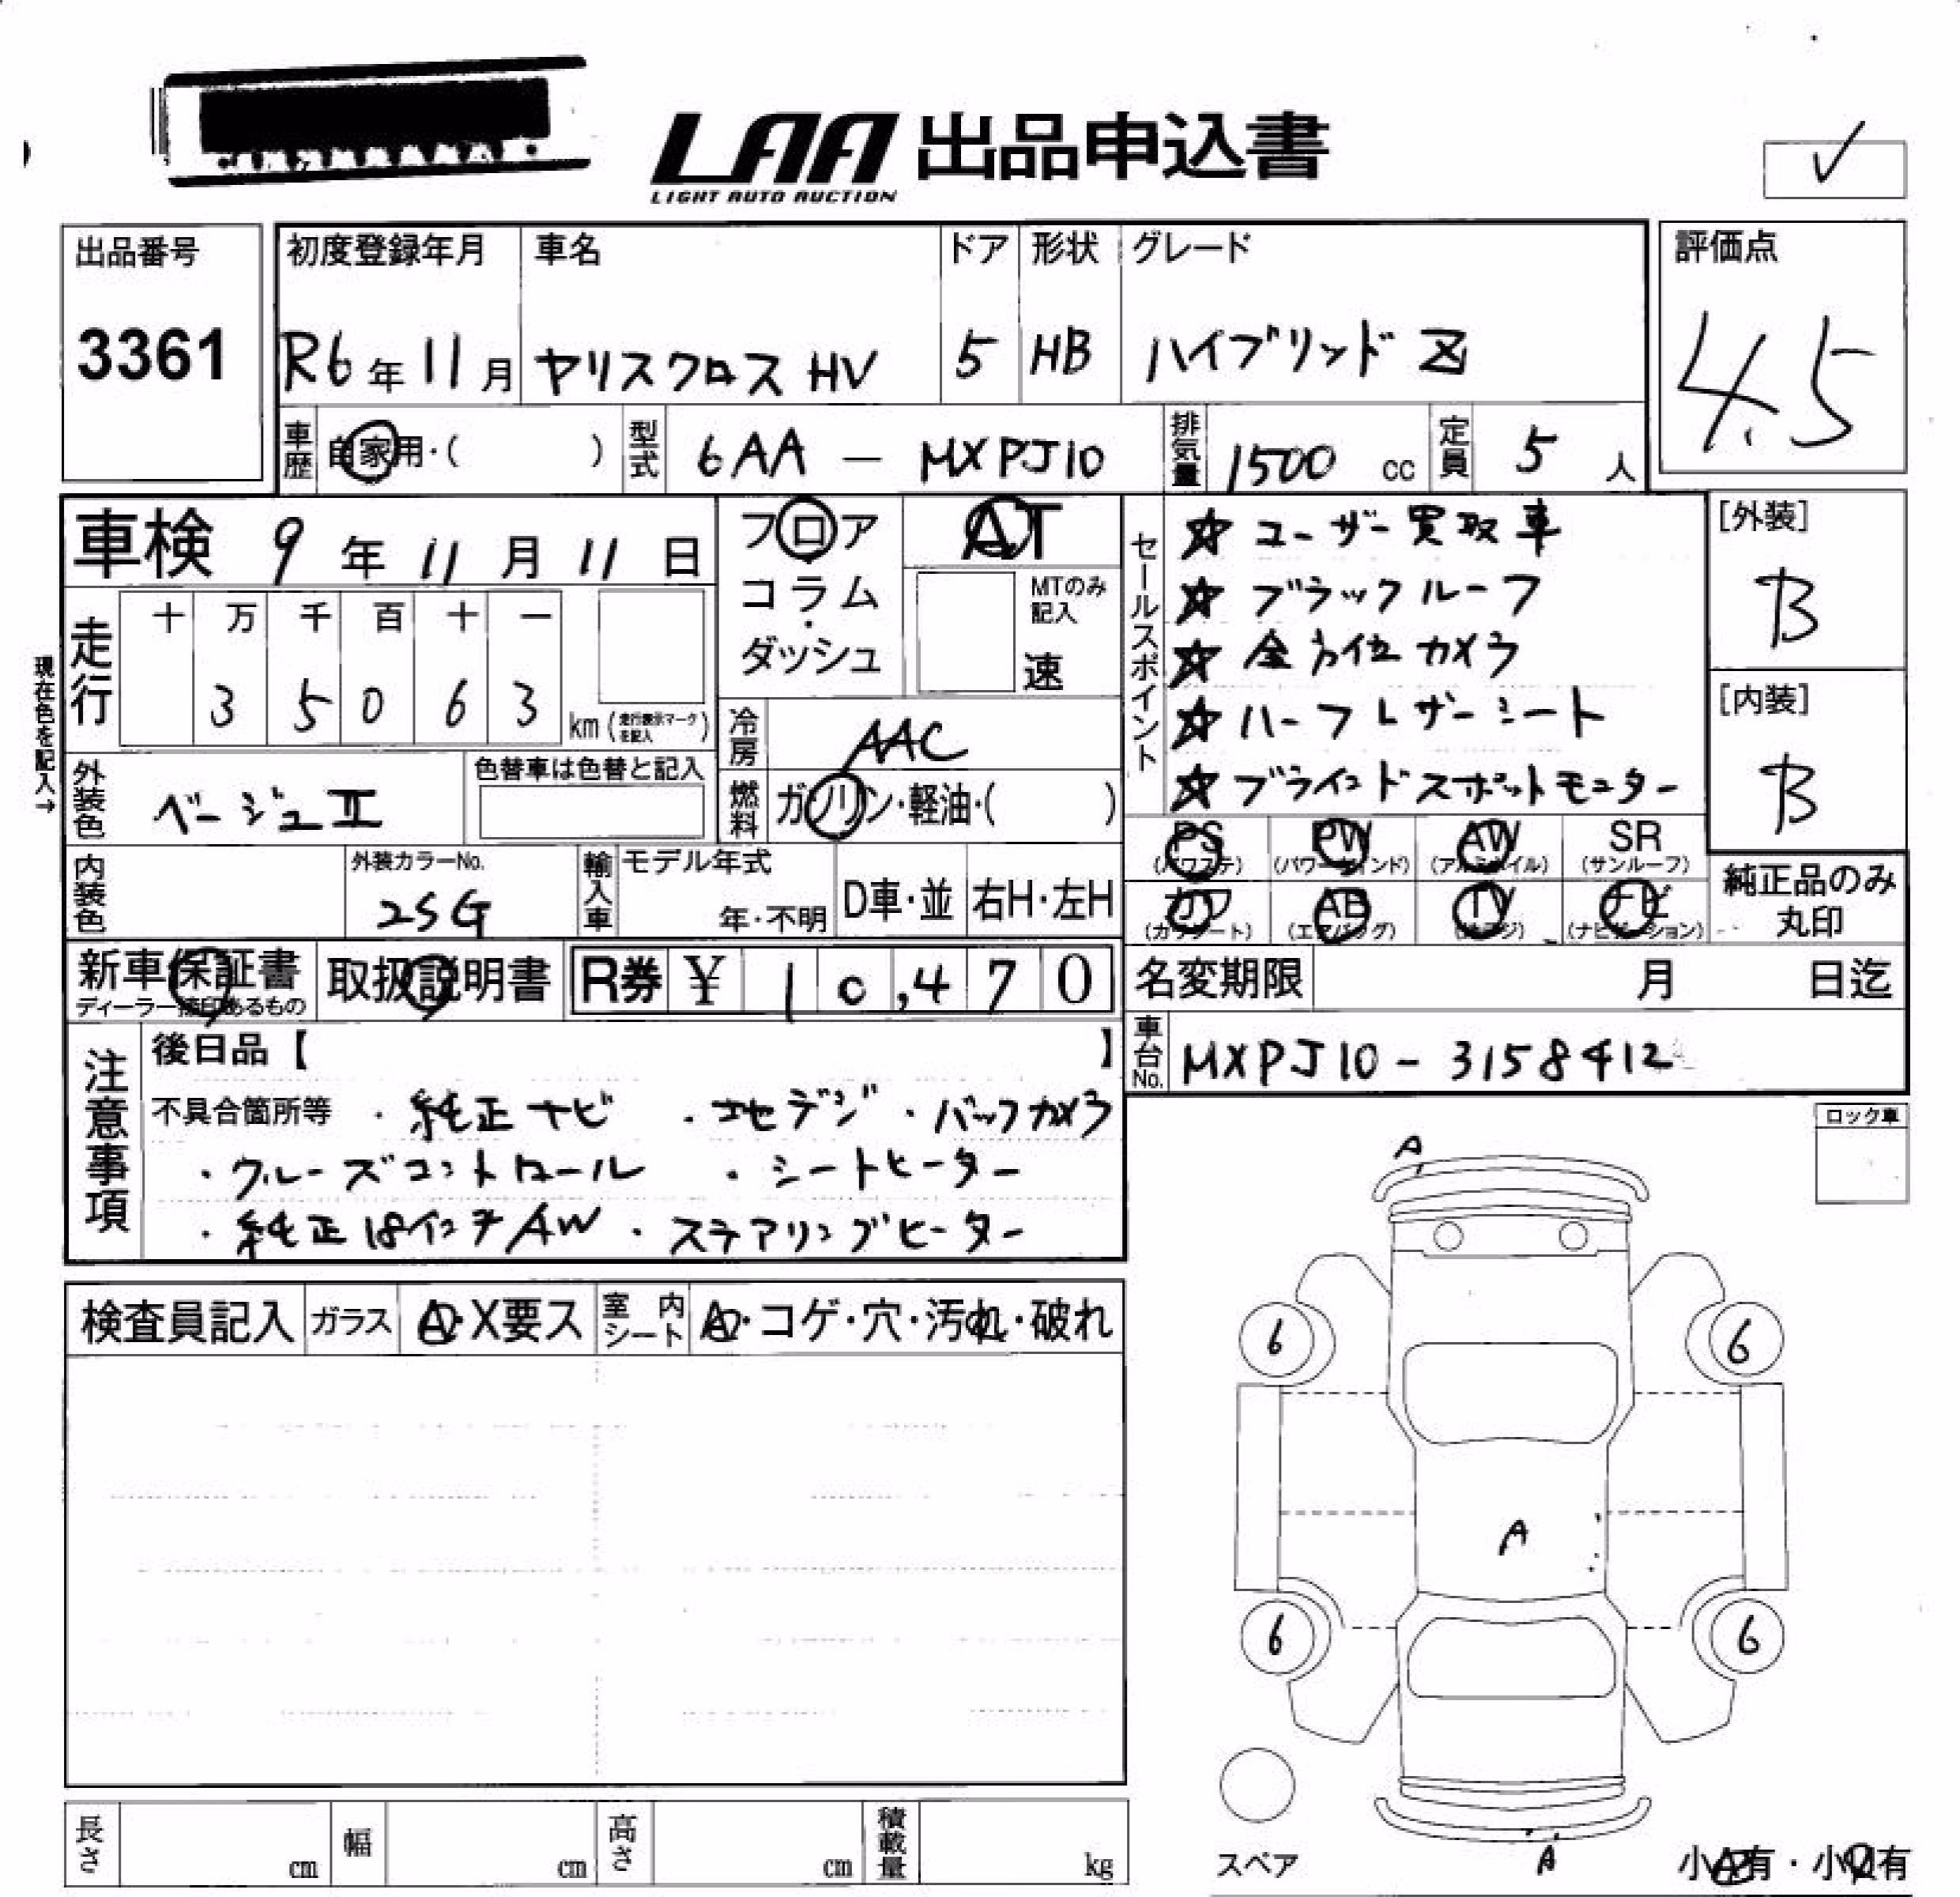 LAA 出品申込書
LIGHT AUTO AUCTION
✓
出品番号 初度登録年月 車名 ドア 形状 グレード 評価点
3361 R6年11月 ヤリスクロス HV 5 HB ハイブリッド Z 4.5
車歴 自家用・( ) 型式 6AA - MXPJ10 排気量 1500 cc 定員 5 人
車検 9年11月11日
フロア
コラム・
ダッシュ
AT
MTのみ記入
速
セールスポイント
☆ ユーザー買取車
☆ ブラックルーフ
☆ 全方位カメラ
☆ ハーフレザーシート
☆ ブラインドスポットモニター
[外装]
B
[内装]
B
現在色を記入→
走行 十 万 千 百 十 一
3 5 0 6 3 km (走行表示マークを記入)
冷房 AAC
燃料 ガソリン・軽油・( )
外装色 ベージュII 色替車は色替と記入
PS (パワステ) PW (パワーウィンド) AW (アルミホイル) SR (サンルーフ)
カワ (カワシート) AB (エアバッグ) TV ナビ (ナビゲーション)
純正品のみ
丸印
内装色 外装カラーNo. 2SG 輸入車 モデル年式 年・不明 D車・並 右H・左H
新車保証書 取扱説明書 R券 ¥ 10,470
ディーラー捺印あるもの
名変期限 月 日迄
車台No. MXPJ10-3158412
注意事項
後日品【 】
不具合箇所等 ・純正ナビ ・地デジ ・バックカメラ
・クルーズコントロール ・シートヒーター
・純正18インチAW ・ステアリングヒーター
ロック車
A
検査員記入 ガラス A・X要ス 室内シート A・コゲ・穴・汚れ・破れ
6 6
A
6 6
スペア
A
小A有・小U有
長さ cm 幅 cm 高さ cm 積載量 kg